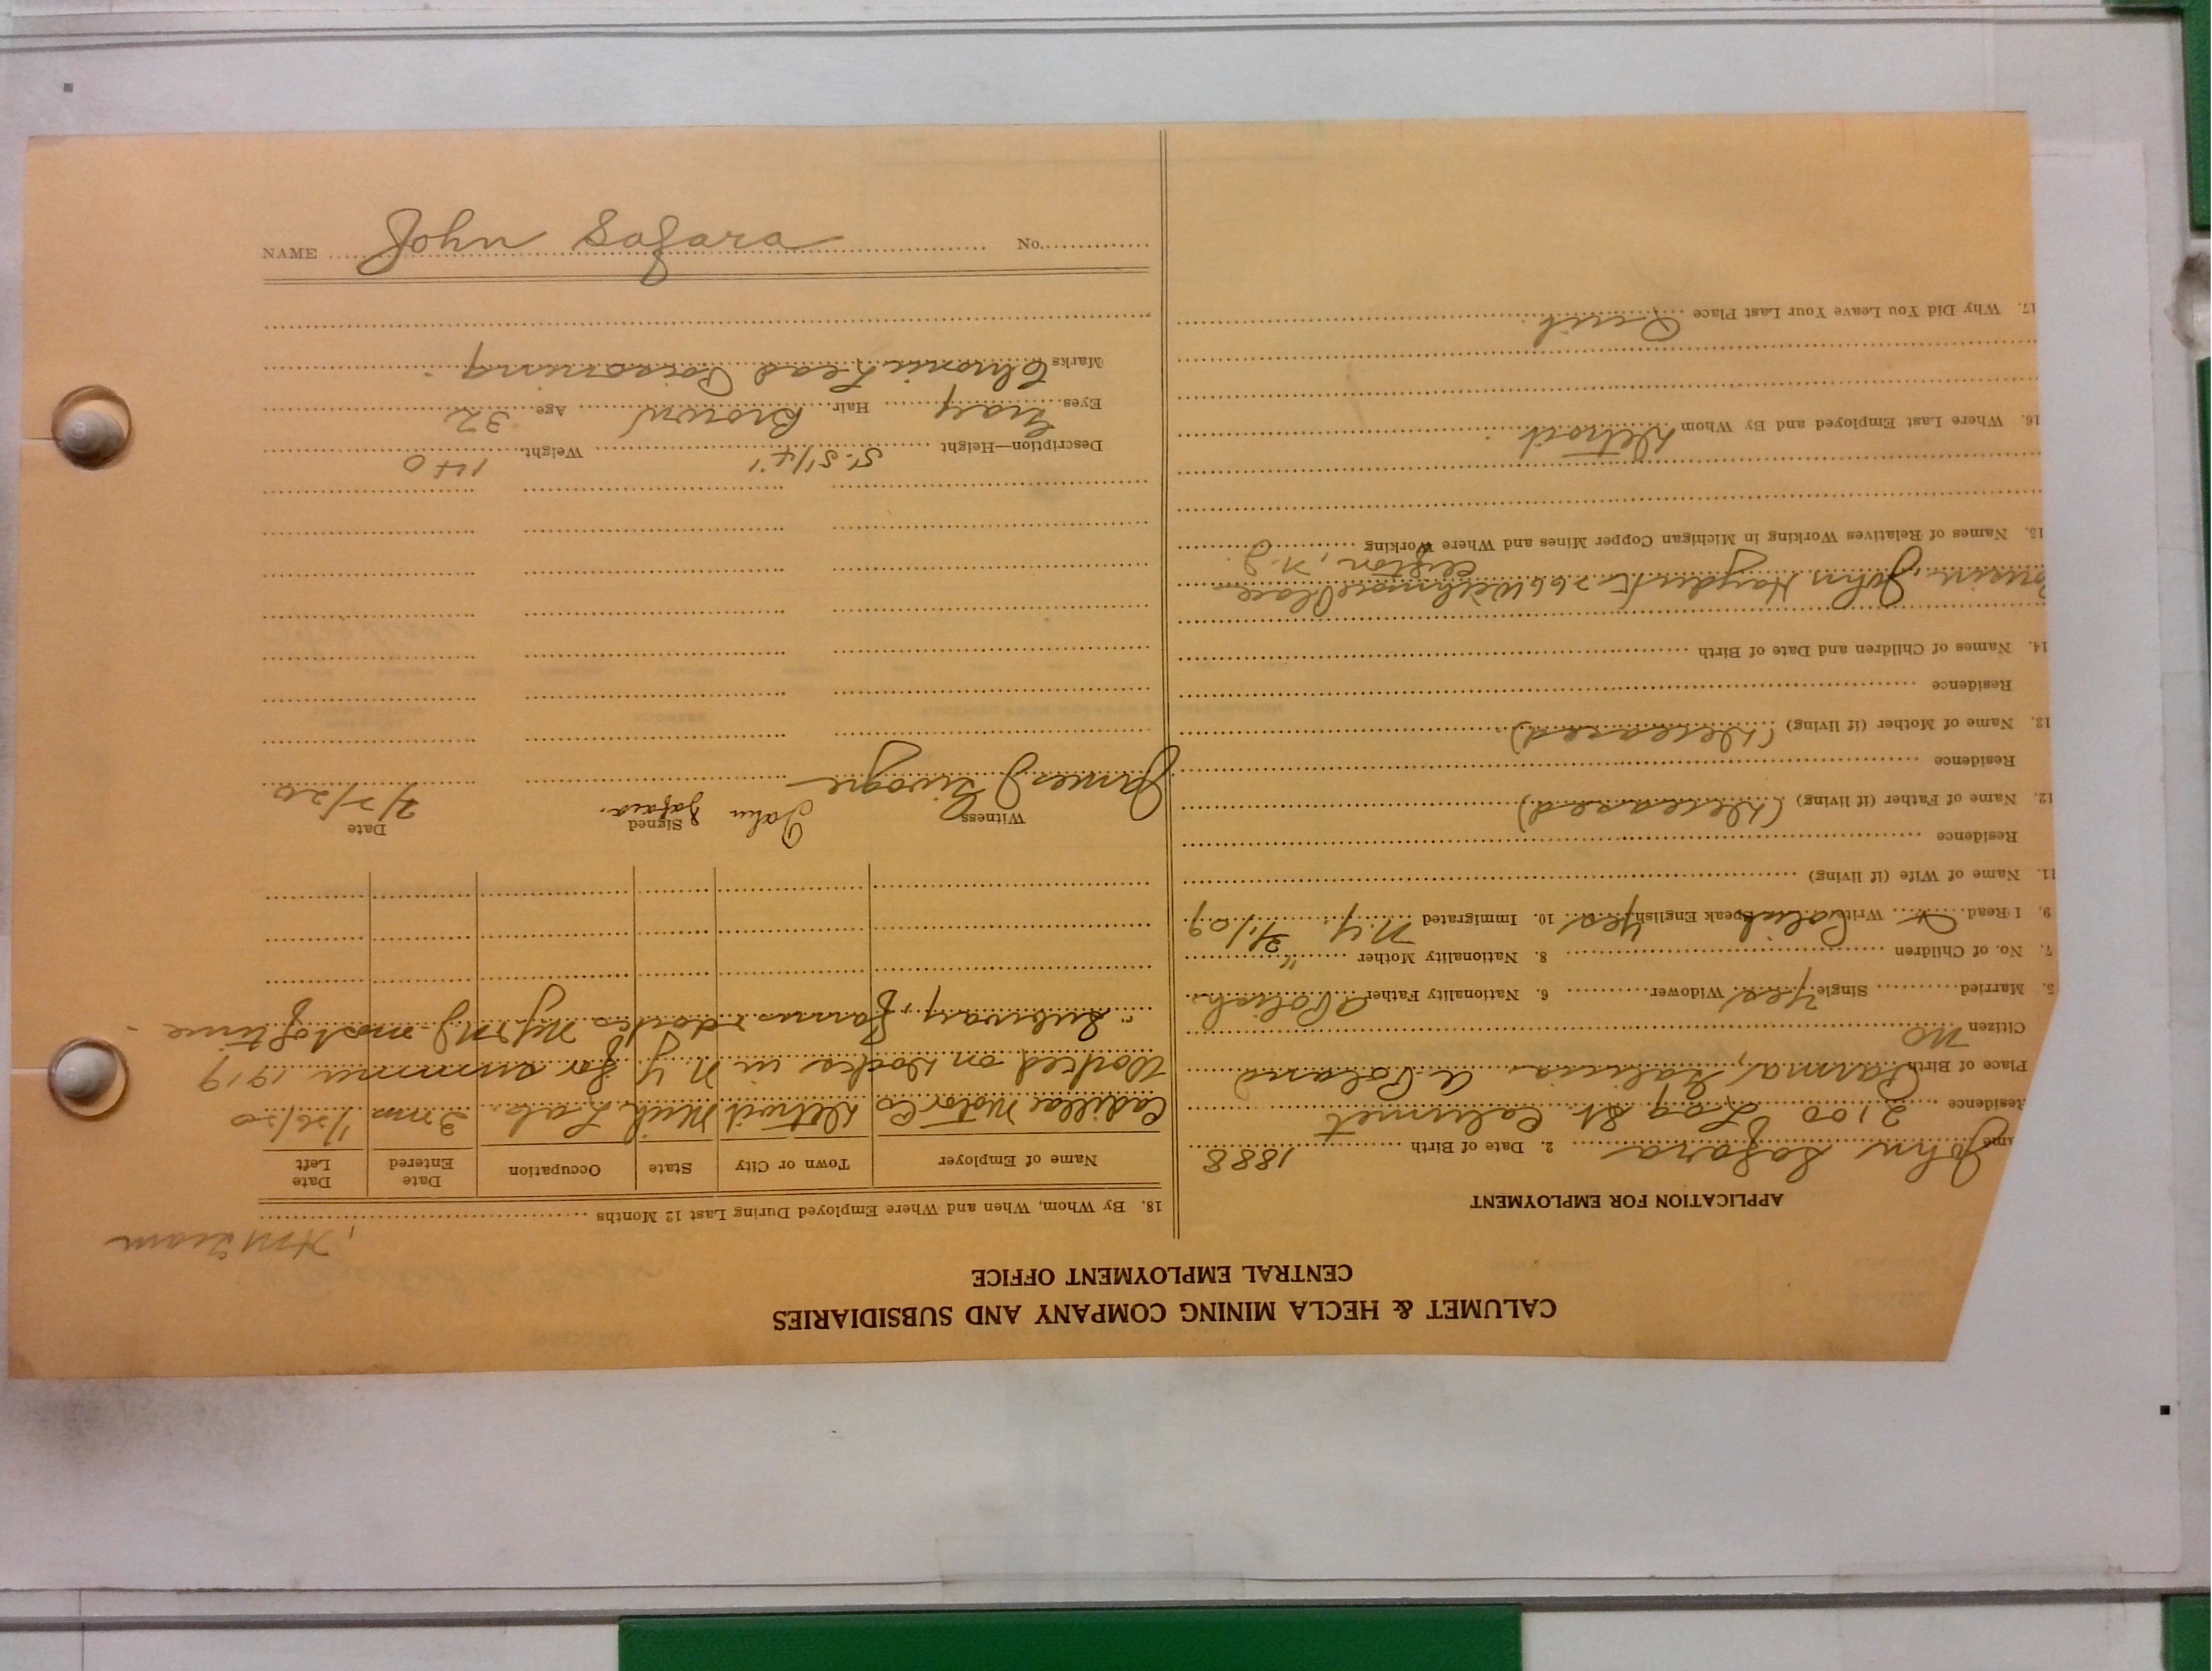 CALUMET & HECLA MINING COMPANY AND SUBSIDIARIES
CENTRAL EMPLOYMENT OFFICE
APPLICATION FOR EMPLOYMENT
ame John Safara 2. Date of Birth 1888
Residence 2100 Log St. Calumet
Place of Birth Parma, Galicia Poland
Citizen No
5. Married Single Yes Widower 6. Nationality Father Polish
7. No. of Children 8. Nationality Mother "
9. I Read Write Polish Speak English Yes 10. Immigrated N.Y.
11. Name of Wife (if living)
Residence
12. Name of Father (if living) (Deceased)
Residence
13. Name of Mother (if living) (Deceased)
Residence
14. Names of Children and Date of Birth
John Place
Clifton, N.J.
15. Names of Relatives Working in Michigan Copper Mines and Where Working
16. Where Last Employed and By Whom Detroit
17. Why Did You Leave Your Last Place Quit
18. By Whom, When and Where Employed During Last 12 Months
Name of Employer Town or City State Occupation Date Entered Date Left
Cadillac Motor Co Detroit Mich Lab. 3 mos 1/26/20
Worked on Docks in N.Y. for summer 1919
" Subway, farms & docks most of time
Witness Signed Date
James John Safara. 2/2/20
Description—Height 5'.5 1/4" Weight 140
Eyes Gray Hair Brown Age 32
Marks Chronic Lead Poisoning
NAME John Safara No.